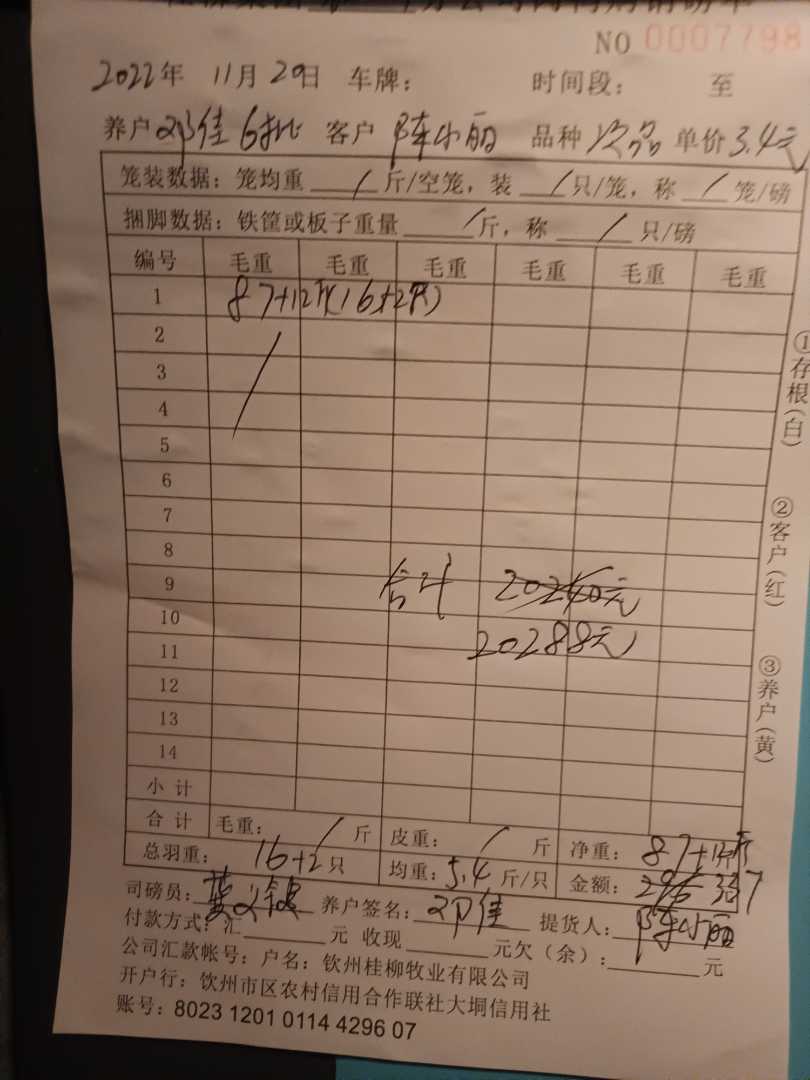 NO 0007798
2022年 11月 20日 车牌: 时间段: 至
养户 邓佳 6批 客户 陈小丽 品种 次品 单价 3.4元
笼装数据: 笼均重 / 斤/空笼, 装 / 只/笼, 称 / 笼/磅
捆脚数据: 铁筐或板子重量 / 斤, 称 / 只/磅
编号 毛重 毛重 毛重 毛重 毛重 毛重
1 87+12斤(16+2只)
2
3
4
5
6
7
8
9 合计 20240元
10
11 20288元
12
13
14
小计
合计 毛重: / 斤 皮重: / 斤 净重: 87+12斤
总羽重: 16+2 只 均重: 5.4 斤/只 金额: 337
司磅员: 养户签名: 邓佳 提货人: 陈小丽
付款方式: 汇 元 收现 元欠(余): 元
公司汇款帐号: 户名: 钦州桂柳牧业有限公司
开户行: 钦州市区农村信用合作联社大垌信用社
账号: 8023 1201 0114 4296 07
①存根(白)
②客户(红)
③养户(黄)